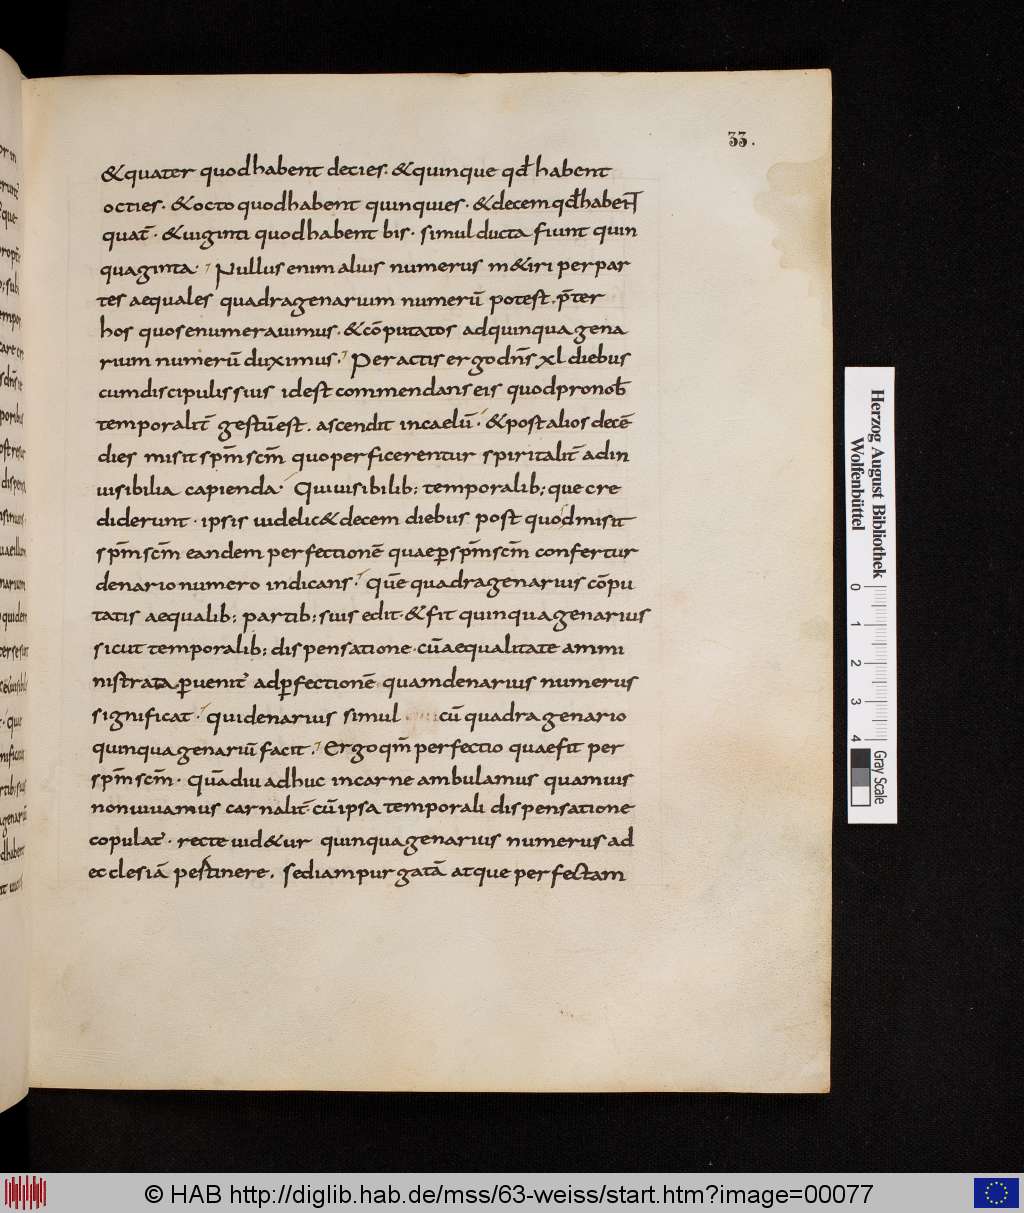 33.
&quater quodhabent decies. &quinque qđ habent
octies· &octo quodhabent quinquies· &decem qđhabent
quat̄· &uiginti quodhabent bis· simul ducta fiunt quin
quaginta· Nullus enim alius numerus m&iri perpar
tes aequales quadragenarium numerū potest. p̄ter
hos quosenumerauimus· &cōputatos adquinquagena
rium numerū duximus. Peractis ergo dn̄s xl diebus
cumdiscipulissuis idest commendans eis quodpronob̄
temporalit̄ gestūest. ascendit incaelū· &postalios decē
dies misit sp̄m sc̄m quoperficerentur spiritalit̄ adin
uisibilia capienda· Quiuisibilib; temporalib; que cre
diderunt· ipsis uidelic& decem diebus post quodmisit
sp̄m sc̄m eandem perfectionē quaeꝑsp̄m sc̄m confertur
denario numero indicans. quē quadragenarius cōpu
tatis aequalib; partib; suis edit· &fit quinquagenarius
sicut temporalib; dispensatione· cūaequalitate ammi
nistrata ꝑuenit̄ adꝑfectionē quamdenarius numerus
significat· quidenarius simul cū quadragenario
quinquagenariū facit. Ergo qm̄ perfectio quaefit per
sp̄m sc̄m· quādiu adhuc incarne ambulamus quamuis
nonuiuamus carnalit̄· cūipsa temporali dispensatione
copulat̄· recte uid&ur quinquagenarius numerus ad
ecclesiā pertinere. sediampurgatā atque perfectam
Herzog August Bibliothek
Wolfenbüttel
0 1 2 3 4
Gray Scale
© HAB http://diglib.hab.de/mss/63-weiss/start.htm?image=00077